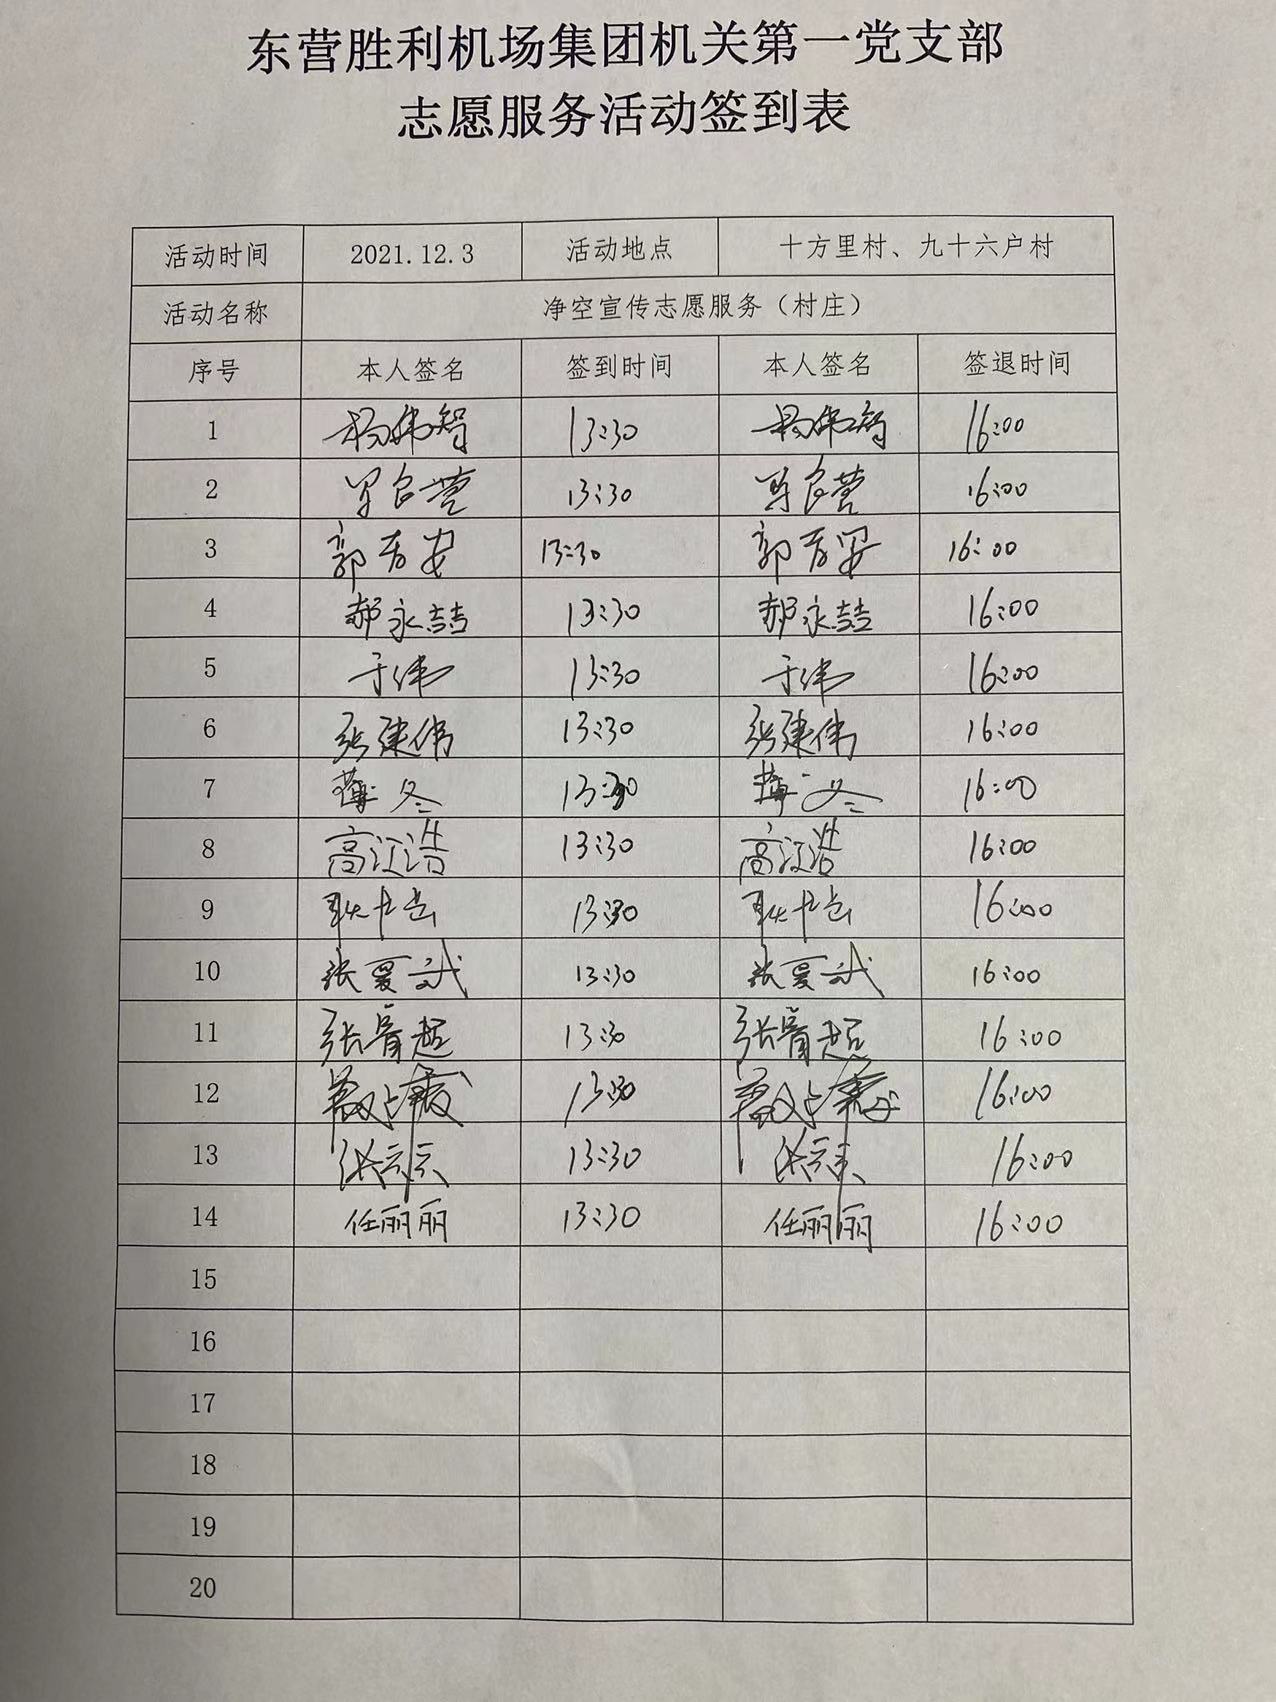 东营胜利机场集团机关第一党支部
志愿服务活动签到表
活动时间 2021.12.3 活动地点 十方里村、九十六户村
活动名称 净空宣传志愿服务（村庄）
序号 本人签名 签到时间 本人签名 签退时间
1 杨伟智 13:30 杨伟智 16:00
2 13:30 16:00
3 郭 13:30 郭 16:00
4 郝永喆 13:30 郝永喆 16:00
5 于伟 13:30 于伟 16:00
6 张建伟 13:30 张建伟 16:00
7 薄冬 13:30 薄冬 16:00
8 高江浩 13:30 高江浩 16:00
9 耿 13:30 耿 16:00
10 张夏斌 13:30 张夏斌 16:00
11 张超 13:30 张超 16:00
12 13:30 16:00
13 张 13:30 张 16:00
14 任丽丽 13:30 任丽丽 16:00
15
16
17
18
19
20